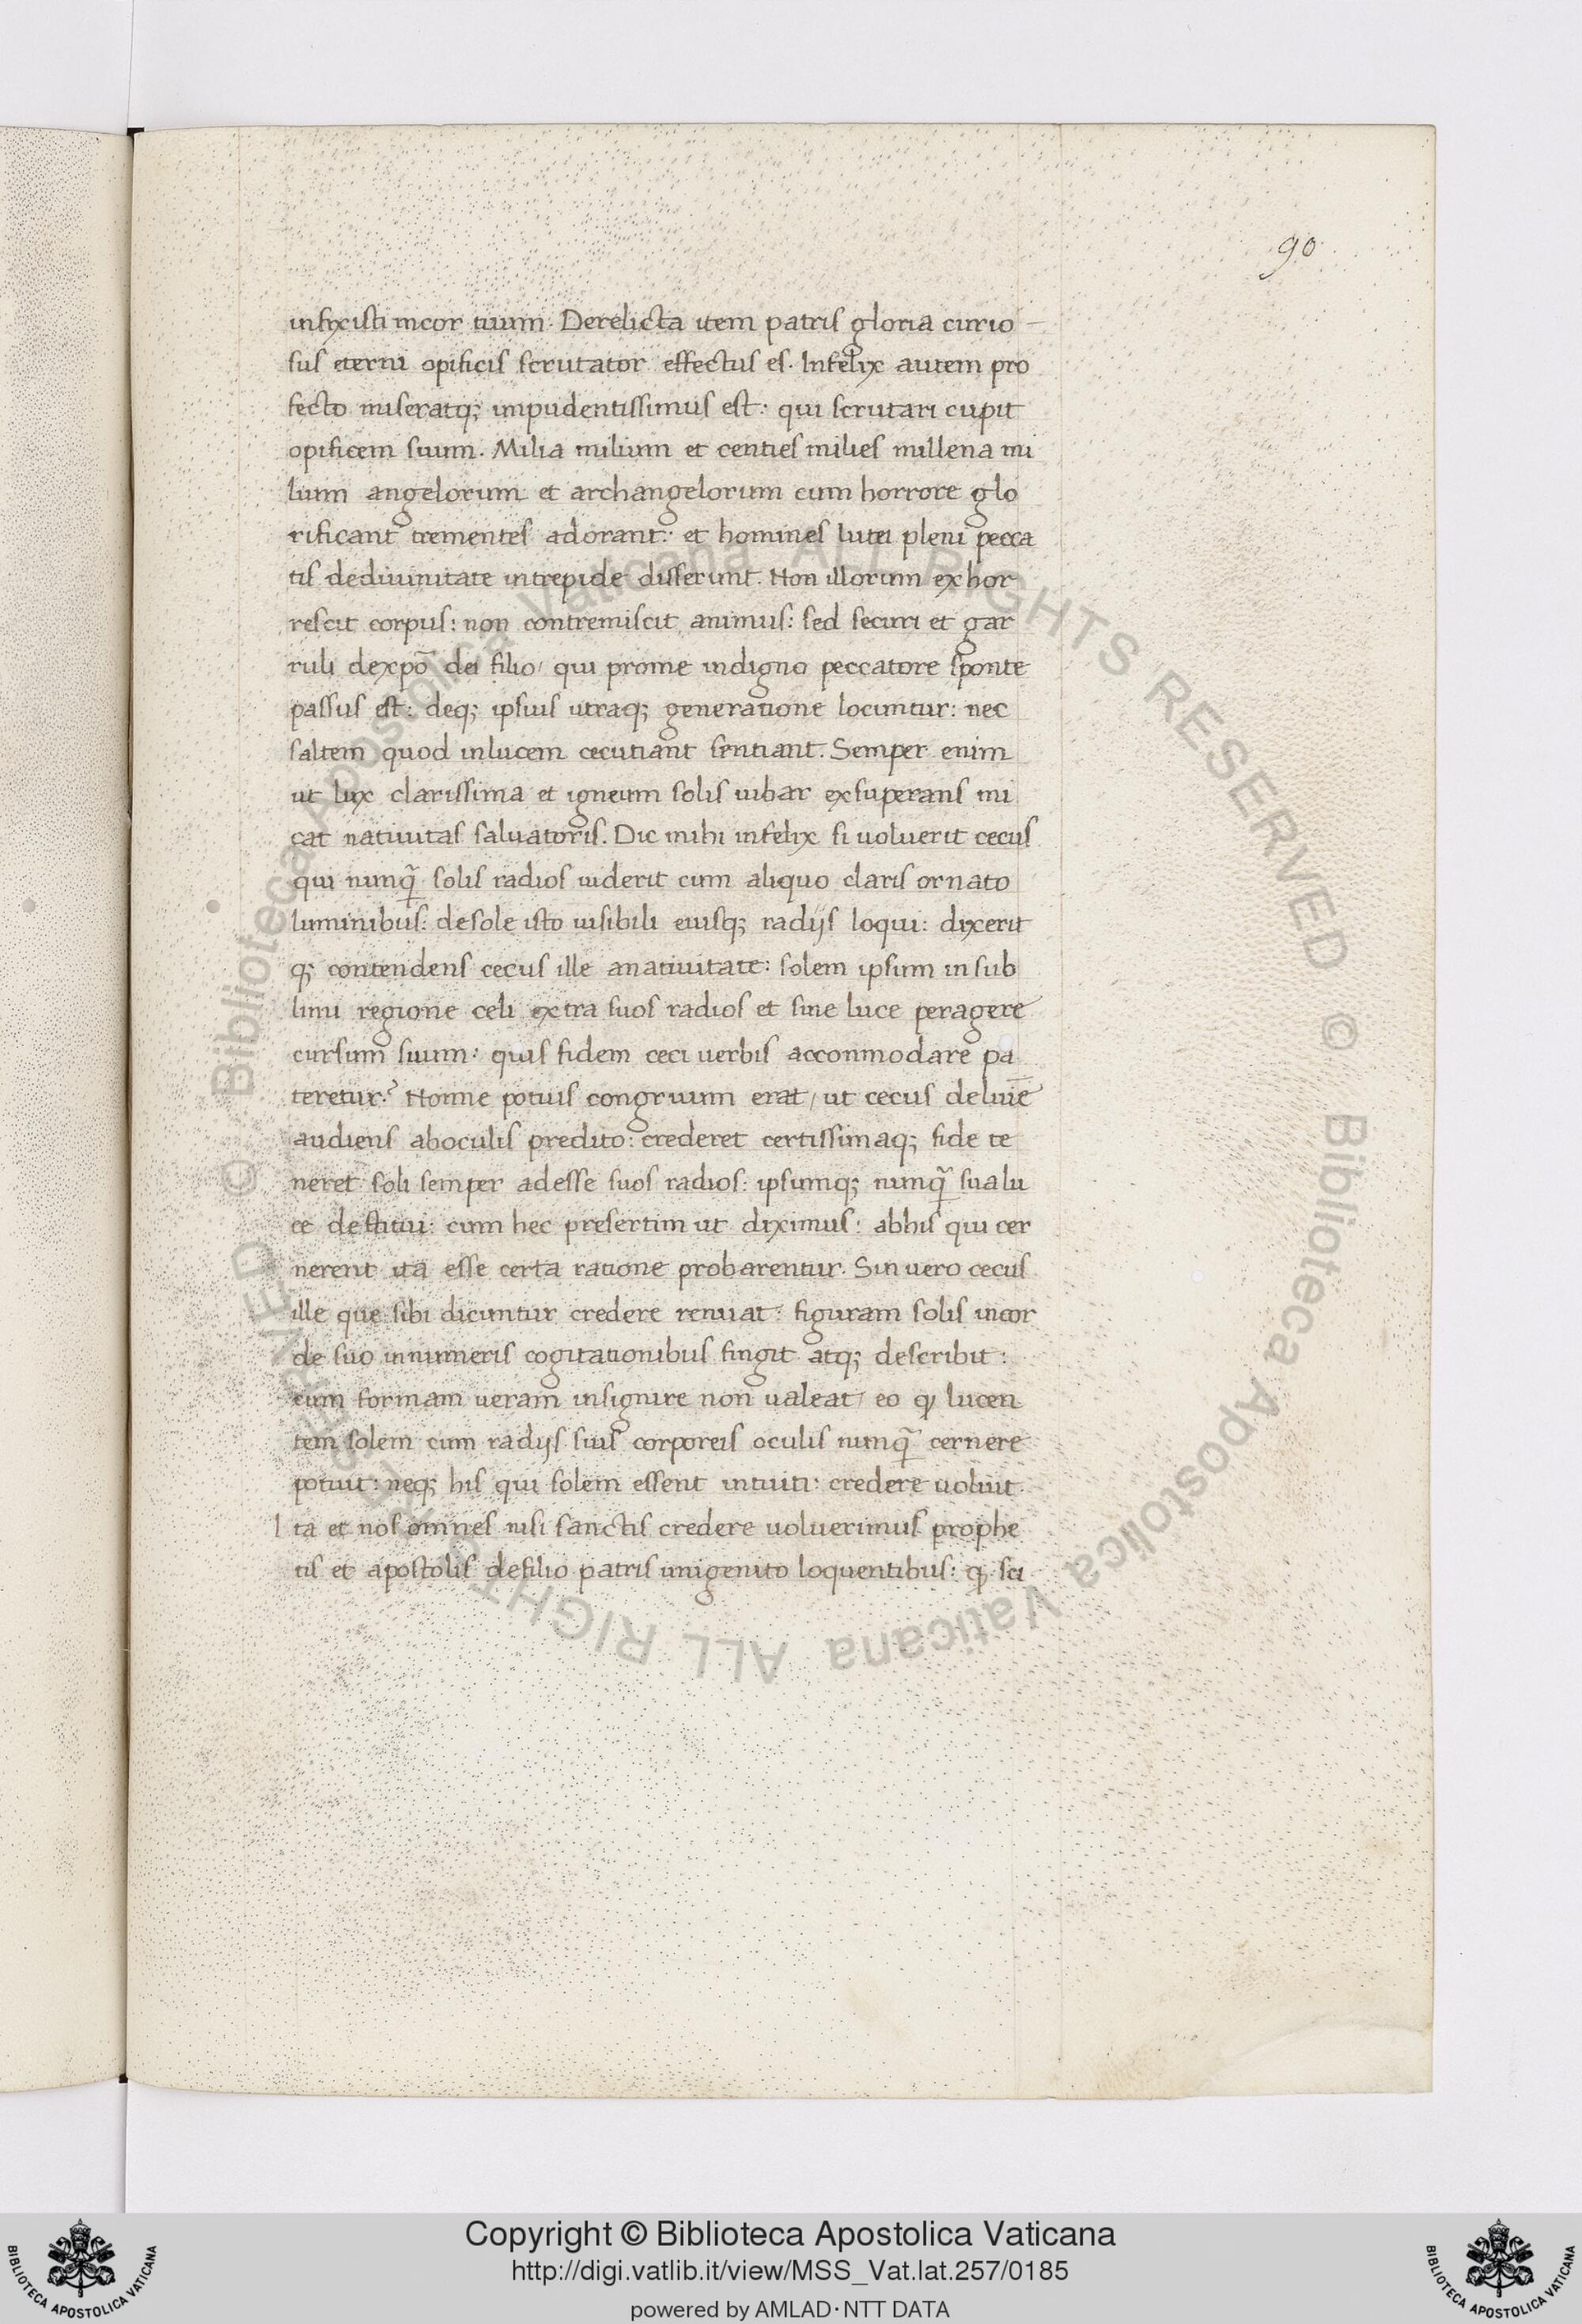 90
infixisti incor tuum. Derelicta item patris gloria curio-
sus eterni opificis scrutator effectus es. Infelix autem pro
fecto miseratq; impudentissimus est: qui scrutari cupit
opificem suum. Milia milium et centies milies millena mi
lium angelorum et archangelorum cum horrore glo
rificant trementes adorant: et homines lutei pleni pecca
tis dediuinitate intrepide disserunt. Non illorum exhor
rescit corpus: non contremiscit animus: sed securi et gar
ruli dexpō dei filio/ qui prome indigno peccatore sponte
passus est: deq; ipsius utraq; generatione locuntur: nec
saltem quod inlucem cecutiant sentiant. Semper enim
ut lux clarissima et igneum solis iubar exsuperans mi
cat natiuitas saluatoris. Dic mihi infelix si uoluerit cecus
qui nunq̃ solis radios uiderit cum aliquo claris ornato
luminibus: desole isto uisibili eiusq; radijs loqui: dixerit
q; contendens cecus ille anatiuitate: solem ipsum insub
limi regione celi extra suos radios et sine luce peragere
cursum suum: quis fidem ceci uerbis acconmodare pa
teretur? Nonne potuis congruum erat/ ut cecus deluīe
audiens aboculis predito: crederet certissimaq; fide te
neret soli semper adesse suos radios: ipsumq; nunq̃ sualu
ce destitui: cum hec presertim ut diximus: abhis qui cer
nerent ita esse certa ratione probarentur. Sin uero cecus
ille que sibi dicuntur credere renuat: figuram solis incor
de suo innumeris cogitationibus fingit atq; describit:
cum formam ueram insignire non ualeat/ eo ꝙ lucen
tem solem cum radijs suis corporeis oculis nunq̃ cernere
potuit: neq; his qui solem essent intuiti: credere uoluit.
Ita et nos omnes nisi sanctis credere uoluerimus prophe
tis et apostolis defilio patris unigenito loquentibus: ꝙ sci
© Biblioteca Apostolica Vaticana ALL RIGHTS RESERVED © Biblioteca Apostolica Vaticana ALL RIGHTS RESERVED
Copyright © Biblioteca Apostolica Vaticana
http://digi.vatlib.it/view/MSS_Vat.lat.257/0185
powered by AMLAD·NTT DATA
BIBLIOTECA APOSTOLICA VATICANA
BIBLIOTECA APOSTOLICA VATICANA